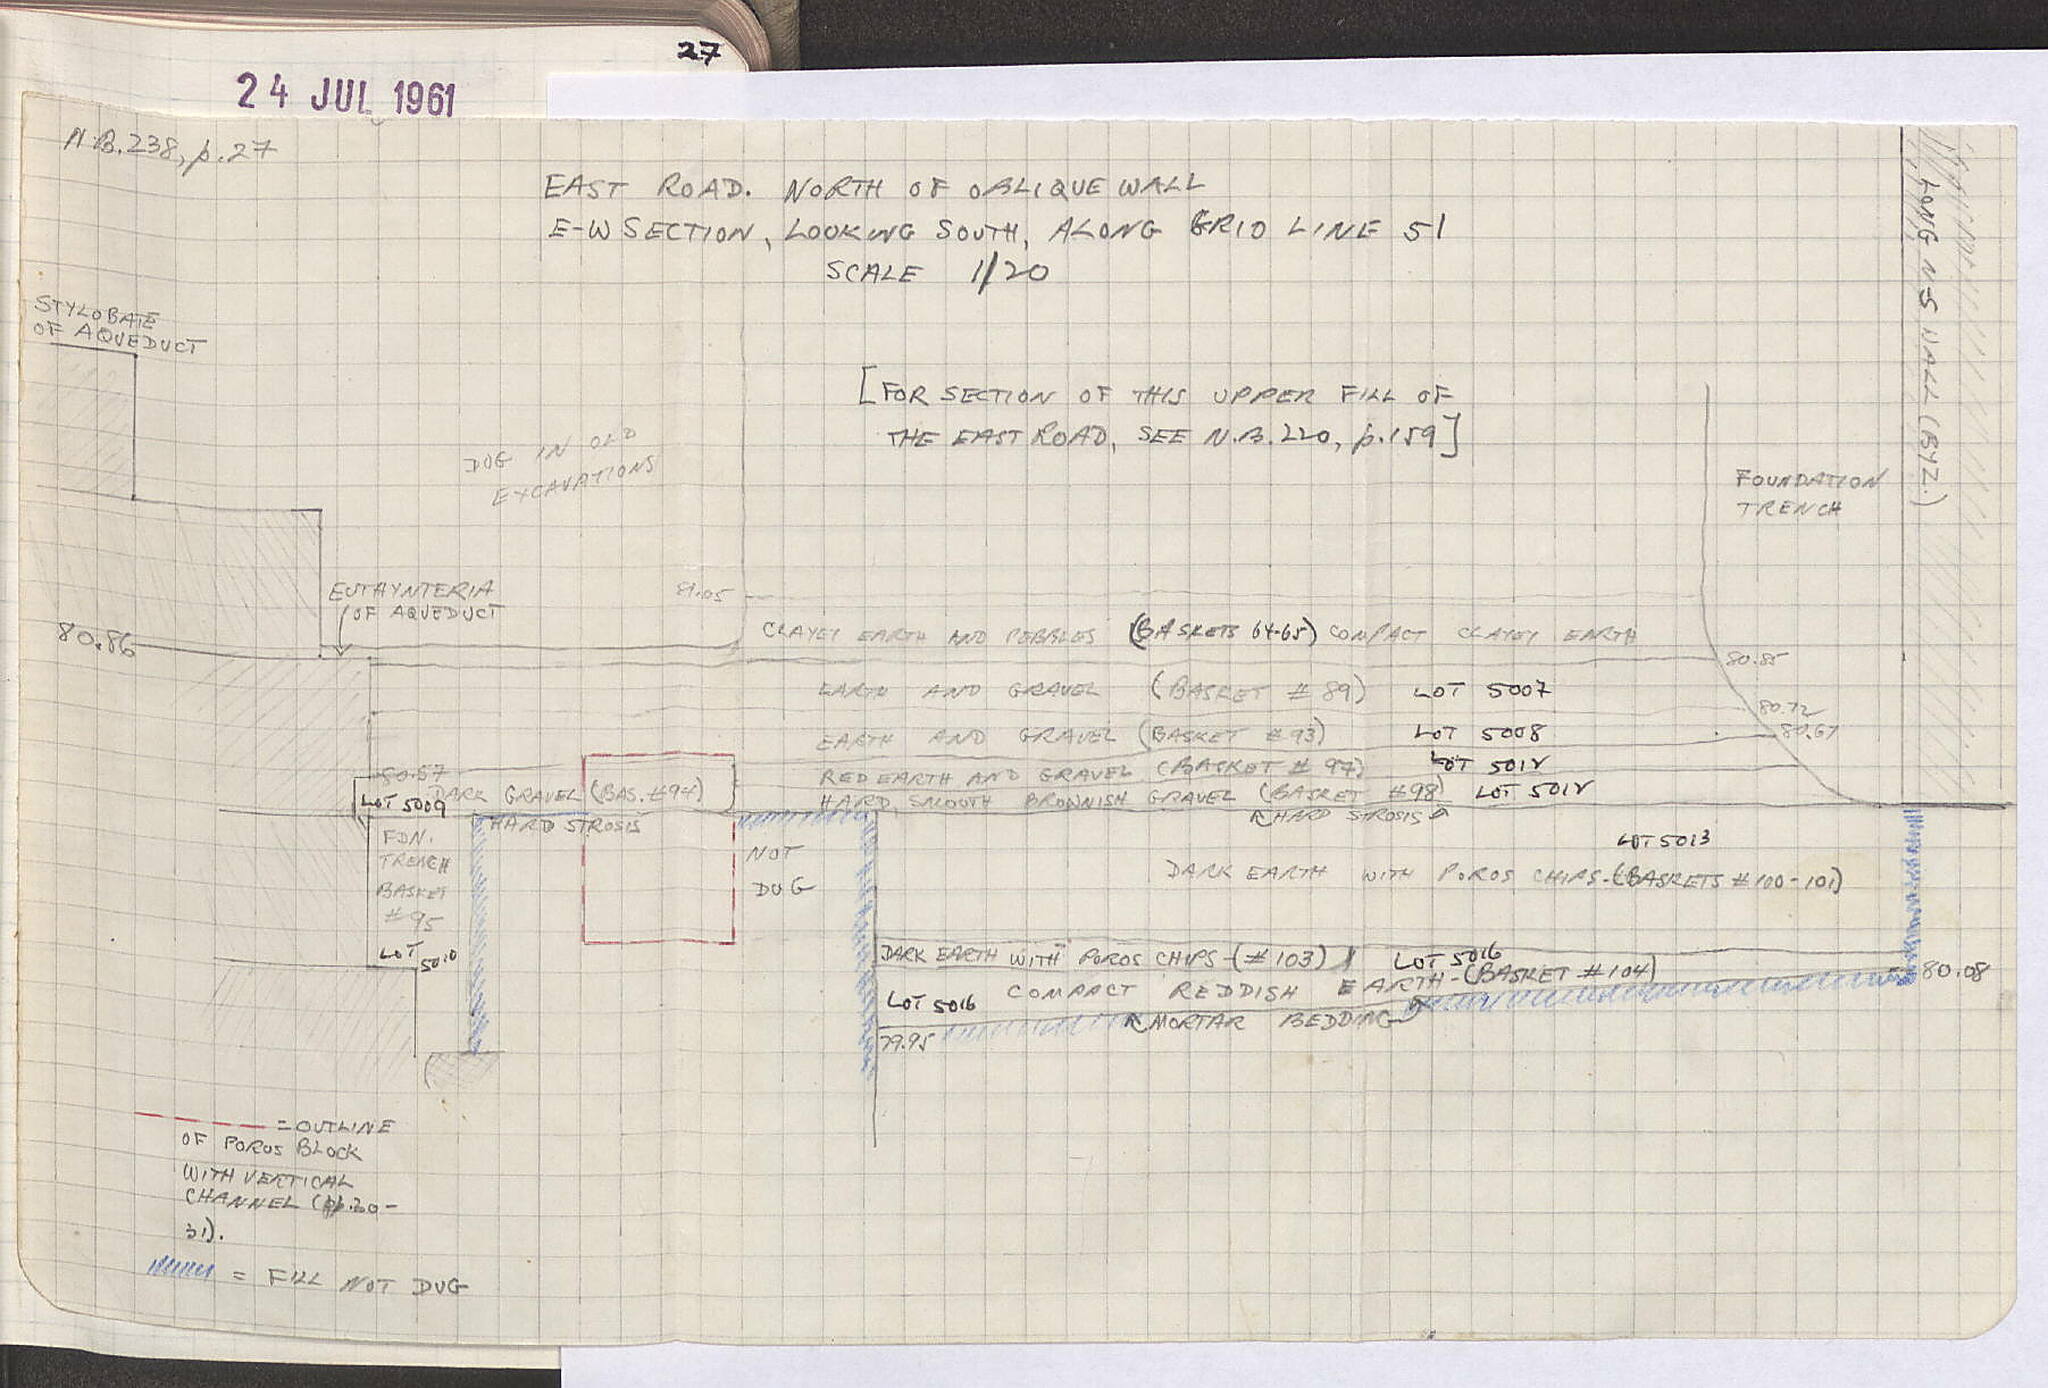 27
24 JUL 1961
N.B.238, p.27
EAST ROAD. NORTH OF OBLIQUE WALL
E-W SECTION, LOOKING SOUTH, ALONG GRID LINE 51
SCALE 1/20
LONG N-S WALL (BYZ.)
STYLOBATE
OF AQUEDUCT
[FOR SECTION OF THIS UPPER FILL OF
THE EAST ROAD, SEE N.B.220, p.159]
DUG IN OLD
EXCAVATIONS
FOUNDATION
TRENCH
EUTHYNTERIA
OF AQUEDUCT
81.05
80.86
CLAYEY EARTH AND PEBBLES (BASKETS 64-65) COMPACT CLAYEY EARTH
80.85
EARTH AND GRAVEL (BASKET # 89) LOT 5007
80.72
EARTH AND GRAVEL (BASKET #93) LOT 5008
80.67
80.57
RED EARTH AND GRAVEL (BASKET # 97) LOT 5012
DARK GRAVEL (BAS. #94)
LOT 5009
HARD SMOOTH BROWNISH GRAVEL (BASKET #98) LOT 5012
HARD STROSIS
HARD STROSIS
FDN.
TRENCH
BASKET
#95
LOT 5010
NOT
DUG
LOT 5013
DARK EARTH WITH POROS CHIPS-(BASKETS #100-101)
DARK EARTH WITH POROS CHIPS-(#103) LOT 5016
LOT 5016 COMPACT REDDISH EARTH-(BASKET #104)
80.08
MORTAR BEDDING
79.95
= OUTLINE
OF POROS BLOCK
WITH VERTICAL
CHANNEL (pp.30-
31).
= FILL NOT DUG